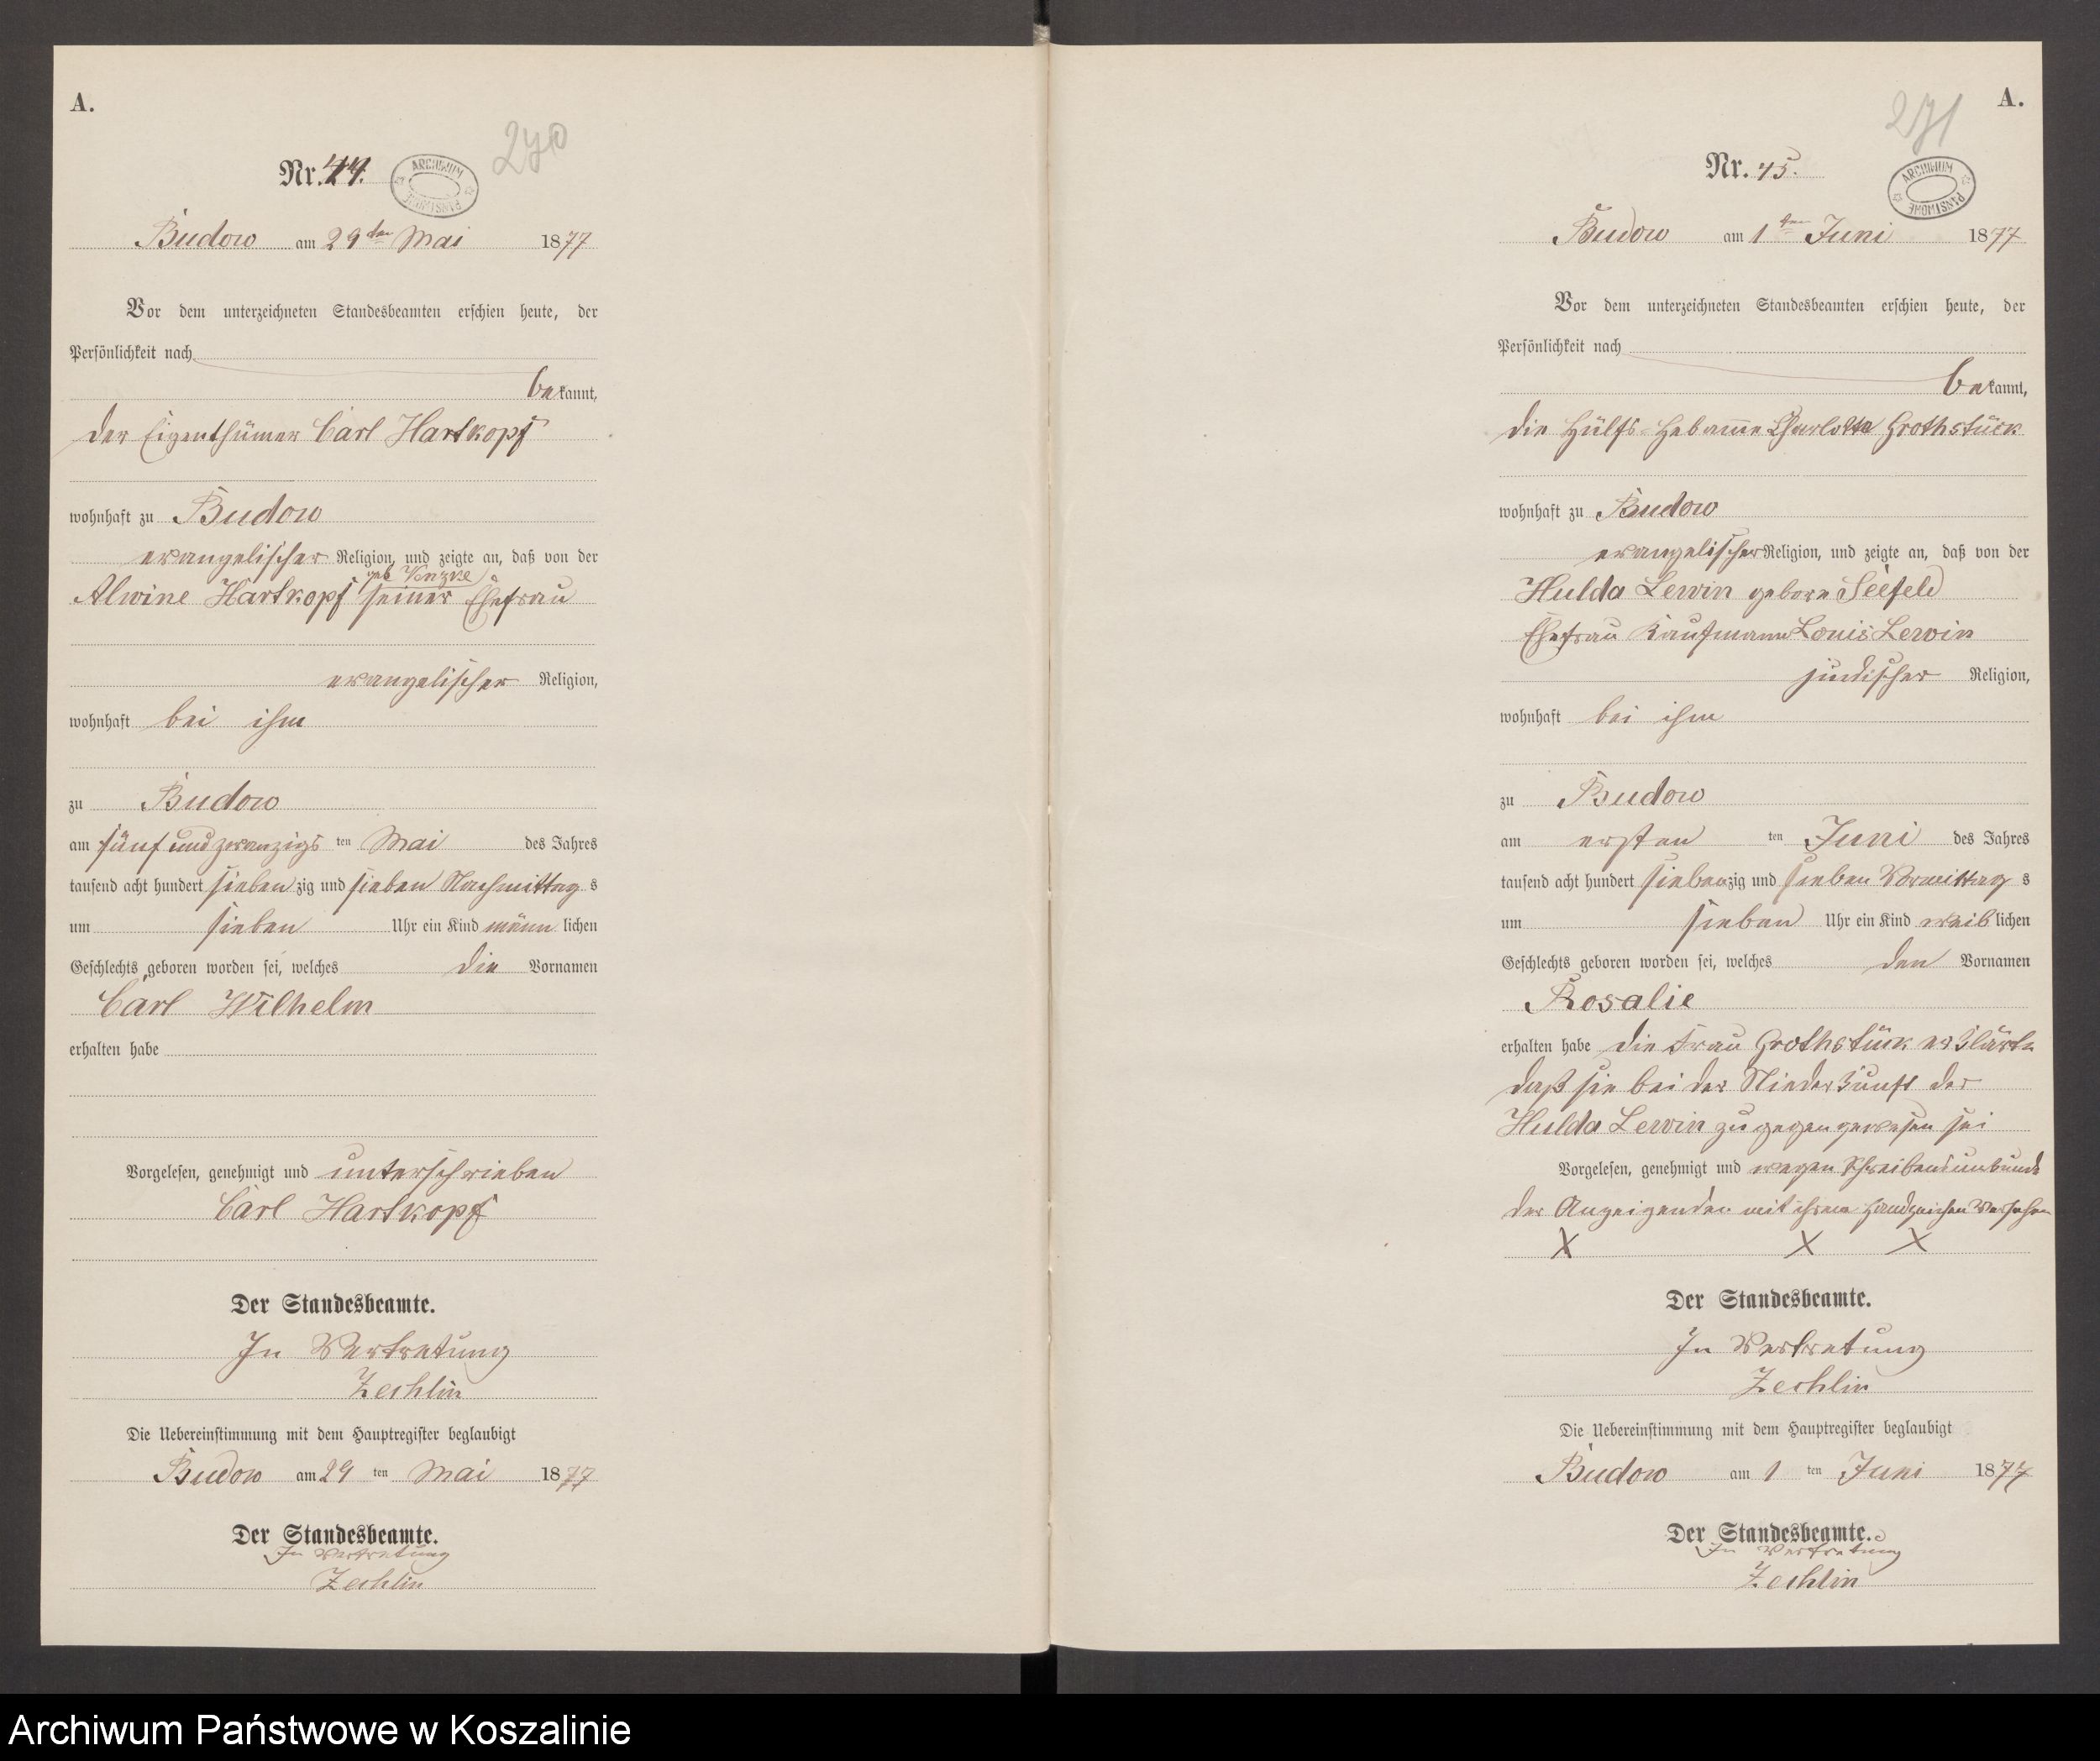 A.
270
Nr. 44.
ARCHIWUM PAŃSTWOWE
Budow am 29ten Mai 1877
Vor dem unterzeichneten Standesbeamten erschien heute, der
Persönlichkeit nach
bekannt,
der Eigenthümer Carl Hartkopf
wohnhaft zu Budow
evangelischer Religion, und zeigte an, daß von der
geb
Alwine Hartkopf seiner Ehefrau
evangelischer Religion,
wohnhaft bei ihm
zu Budow
am fünf und zwanzigs ten Mai des Jahres
tausend acht hundert sieben zig und sieben Nachmittag s
um sieben Uhr ein Kind männ lichen
Geschlechts geboren worden sei, welches die Vornamen
Carl Wilhelm
erhalten habe
Vorgelesen, genehmigt und unterschrieben
Carl Hartkopf
Der Standesbeamte.
In Vertretung
Zechlin
Die Uebereinstimmung mit dem Hauptregister beglaubigt
Budow am 29 ten Mai 1877
Der Standesbeamte.
In Vertretung
Zechlin
A.
271
Nr. 45.
ARCHIWUM PAŃSTWOWE
Budow am 1ten Juni 1877
Vor dem unterzeichneten Standesbeamten erschien heute, der
Persönlichkeit nach
bekannt,
die Hülfs-Hebamme Charlotte Grothstück
wohnhaft zu Budow
evangelischer Religion, und zeigte an, daß von der
Hulda Lewin geborne Seefeld
Ehefrau Kaufmann Louis Lewin
jüdischer Religion,
wohnhaft bei ihm
zu Budow
am ersten ten Juni des Jahres
tausend acht hundert siebenzig und sieben Vormittag s
um sieben Uhr ein Kind weib lichen
Geschlechts geboren worden sei, welches den Vornamen
Rosalie
erhalten habe die Frau Grothstück erklärte
daß sie bei der Niederkunft der
Hulda Lewin zugegen gewesen sei
Vorgelesen, genehmigt und wegen Schreibensunkunde
der Anzeigenden mit ihrem Handzeichen versehen
X X X
Der Standesbeamte.
In Vertretung
Zechlin
Die Uebereinstimmung mit dem Hauptregister beglaubigt
Budow am 1 ten Juni 1877
Der Standesbeamte.
In Vertretung
Zechlin
Archiwum Państwowe w Koszalinie